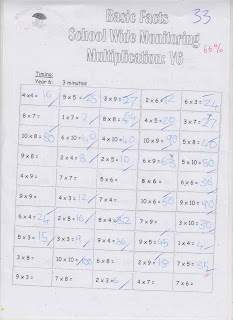 Basic Facts 33
School Wide Monitoring 66%
Multiplication: Y6
Timing:
Year 6: 3 minutes
4 x 4 = 16 5 x 5 = 25 3 x 9 = 27 2 x 6 = 12 6 x 3 =
8 x 7 = 1 x 7 = 7 8 x 8 = 64 4 x 5 = 20 3 x 7 =
10 x 8 = 80 6 x 10 = 60 4 x 10 = 40 10 x 9 = 90 5 x 8 = 40
9 x 8 = 2 x 4 = 8 2 x 5 = 10 6 x 9 = 63 5 x 10 = 50
4 x 9 = 7 x 7 = 5 x 6 = 8 x 6 = 6 x 6 = 36
9 x 9 = 4 x 3 = 12 7 x 4 = 9 x 10 = 90
6 x 4 = 24 2 x 8 = 16 8 x 4 = 7 x 9 = 3 x 10 = 30
5 x 3 = 15 3 x 3 = 9 9 x 4 = 36 9 x 5 = 45 1 x 4 = 4
3 x 8 = 10 x 10 = 100 6 x 8 = 2 x 9 = 18 7 x 5 = 35
9 x 3 = 7 x 8 = 2 x 3 = 6 4 x 7 = 7 x 6 =